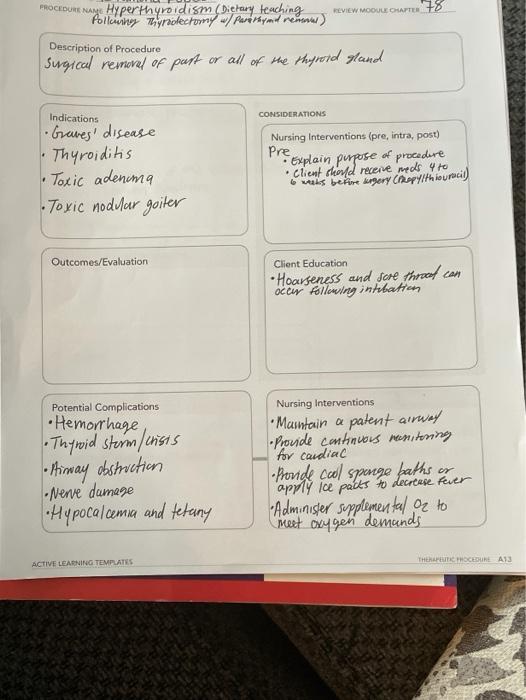 PROCEDURE NAME Hyperthyroidism (Dietary teaching
REVIEW MODULE CHAPTER 78
Following Thyroidectomy w/ Parathyroid removal)
Description of Procedure
Surgical removal of part or all of the thyroid gland
Indications
• Graves' disease
• Thyroiditis
• Toxic adenoma
• Toxic nodular goiter
CONSIDERATIONS
Nursing Interventions (pre, intra, post)
Pre
• Explain purpose of procedure
• Client should receive meds 4 to
6 weeks before surgery (Propylthiouracil)
Outcomes/Evaluation
Client Education
• Hoarseness and sore throat can
occur following intubation
Potential Complications
• Hemorrhage
• Thyroid storm/crisis
• Airway obstruction
• Nerve damage
• Hypocalcemia and tetany
Nursing Interventions
• Maintain a patent airway
• Provide continuous monitoring
for cardiac
• Provide cool sponge baths or
apply ice packs to decrease fever
• Administer supplemental O2 to
meet oxygen demands
ACTIVE LEARNING TEMPLATES
THERAPEUTIC PROCEDURE A13